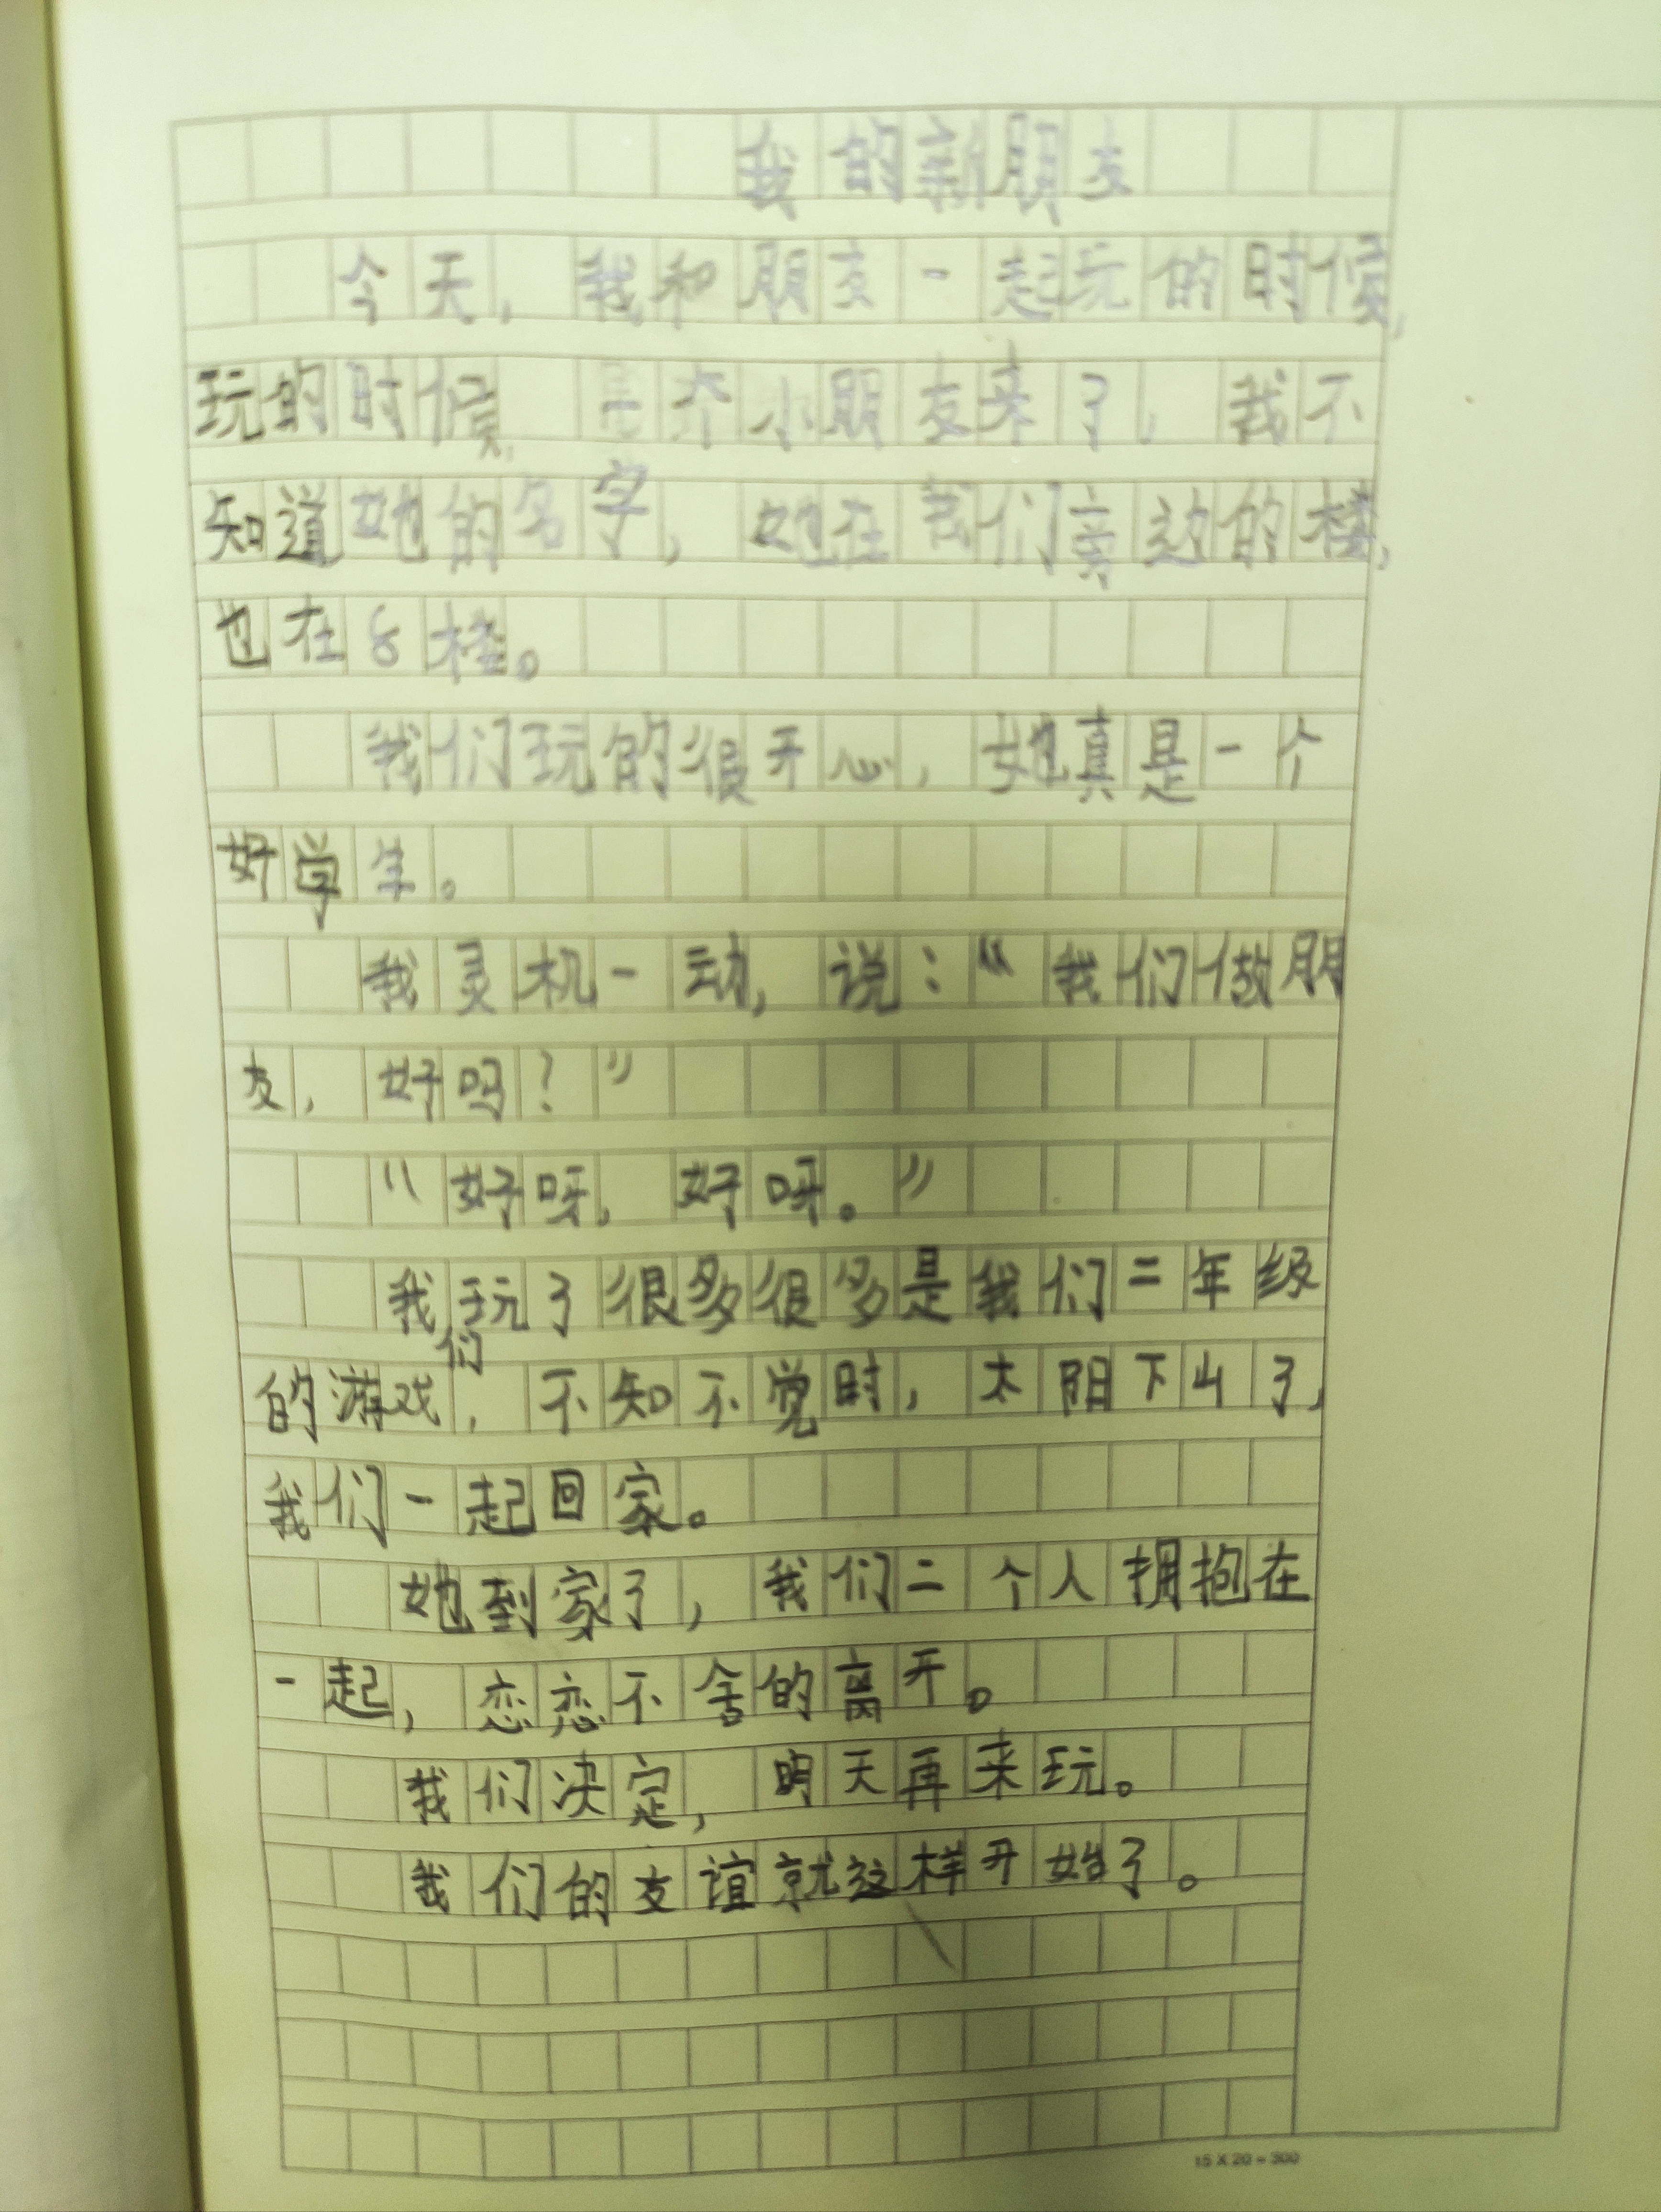 我的新朋友
今天，我和朋友一起玩的时候，
玩的时候，个小朋友来了，我不
知道她的名字，她在我们旁边的楼，
也在8楼。
我们玩的很开心，她真是一个
好学生。
我灵机一动，说：“我们做朋
友，好吗？”
“好呀，好呀。”
我们玩了很多很多是我们二年级
的游戏，不知不觉时，太阳下山了，
我们一起回家。
她到家了，我们二个人拥抱在
一起，恋恋不舍的离开。
我们决定，明天再来玩。
我们的友谊就这样开始了。
15 X 20 = 300